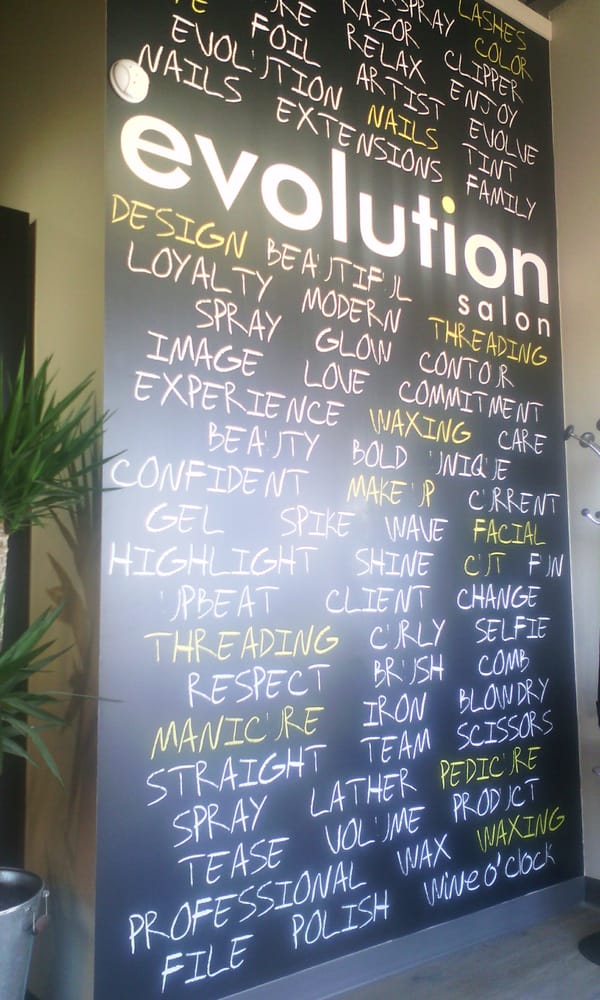 SPRAY LASHES
RAZOR COLOR
FOIL RELAX CLIPPER
EVOLUTION ARTIST ENJOY
NAILS NAILS EVOLVE
EXTENSIONS TINT
FAMILY
evolution
salon
DESIGN BEAUTIFUL
LOYALTY MODERN THREADING
SPRAY GLOW CONTOUR
IMAGE LOVE COMMITMENT
EXPERIENCE WAXING CARE
BEAUTY BOLD UNIQUE
CONFIDENT MAKEUP CURRENT
GEL SPIKE WAVE FACIAL
HIGHLIGHT SHINE CUT FUN
UPBEAT CLIENT CHANGE
THREADING CURLY SELFIE
RESPECT BRUSH COMB
MANICURE IRON BLOWDRY
STRAIGHT TEAM SCISSORS
SPRAY LATHER PEDICURE
TEASE VOLUME PRODUCT
PROFESSIONAL WAX WAXING
FILE POLISH wine o'clock